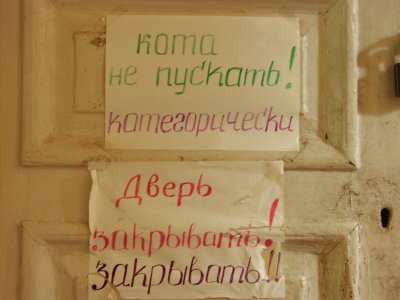 кота
не пускать!
категорически
Дверь
закрывать!
закрывать!!